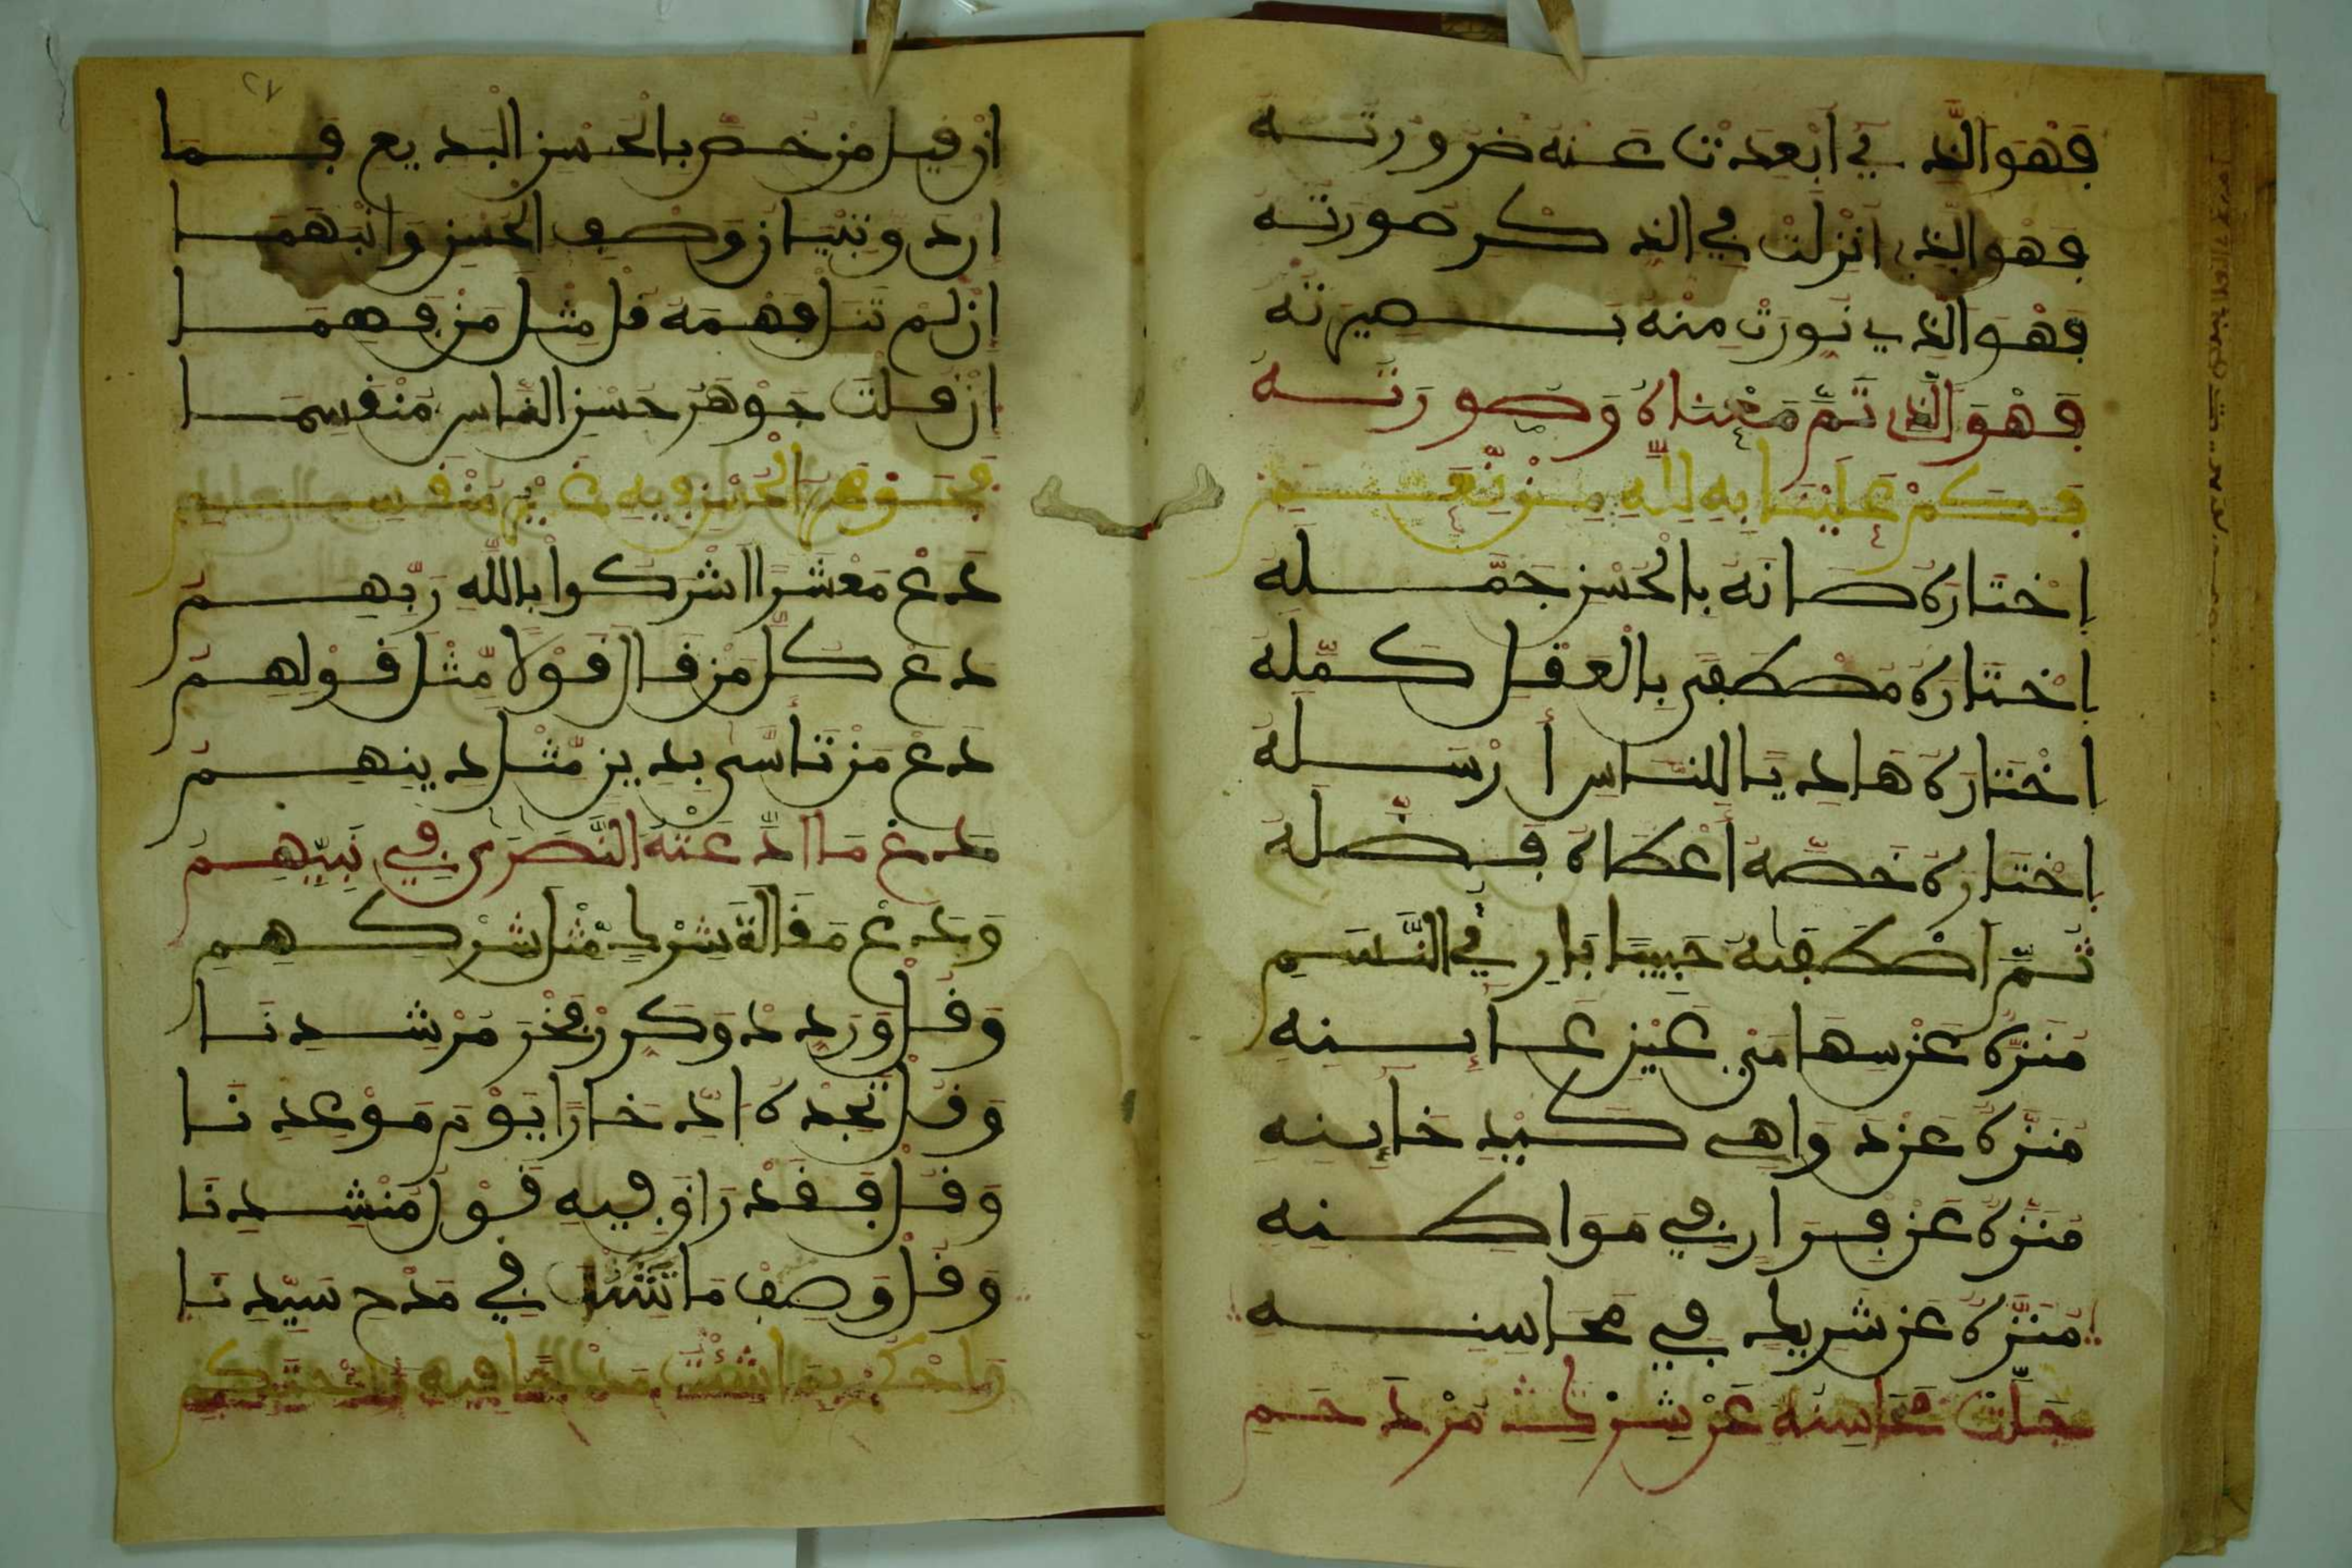 فَهْوَ الَّذِي أَبْعَدَتْنَا عَنْهُ ضَرُورَتُهُ
فَهْوَ الَّذِي أُنْزِلَتْ فِي الذِّكْرِ صُورَتُهُ
فَهْوَ الَّذِي نُوِّرَتْ مِنْهُ بَصِيرَتُهُ
فَهْوَ الَّذِي تَمَّ مَعْنَاهُ وَصُورَتُهُ
فَكَمْ عَلَيْنَا بِهِ لِلَّهِ مِنْ نِعَمِ
اِخْتَارَهُ صَانَهُ بِالْحُسْنِ جَمَّلَهُ
اِخْتَارَهُ مُصْطَفًى بِالْعَقْلِ كَمَّلَهُ
اِخْتَارَهُ هَادِيًا لِلنَّاسِ أَرْسَلَهُ
اِخْتَارَهُ خَصَّهُ أَعْطَاهُ فَضَّلَهُ
ثُمَّ اصْطَفَاهُ حَبِيبًا بَارِئُ النَّسَمِ
مُنَزَّهٌ عَنْ سِهَا مِنْ عَيْنِ عَائِنِهِ
مُنَزَّهٌ عَنْ دَوَاهِي كَيْدِ خَائِنِهِ
مُنَزَّهٌ عَنْ قَرَارٍ فِي مَوَاطِنِهِ
مُنَزَّهٌ عَنْ شَرِيكٍ فِي مَحَاسِنِهِ
جَلَّتْ مَحَاسِنُهُ عَنْ شِرْكِ مُزْدَحِمِ
اِنْ قِيلَ مَنْ خُصَّ بِالْحُسْنِ الْبَدِيعِ فَمَا
اِنْ لَمْ تَنَلْ فَهْمَهُ قُلْ مِثْلَ مَنْ فَهِمَا
اِنْ قُلْتَ جَوْهَرُ حُسْنِ النَّاسِ مُنْقَسِمَا
فَجَوْهَرُ الْحُسْنِ فِيهِ غَيْرُ مُنْقَسِمِ
دَعْ مَعْشَرًا اشْرَكُوا بِاللَّهِ رَبِّهِمِ
دَعْ كُلَّ مَنْ قَالَ قَوْلًا مِثْلَ قَوْلِهِمِ
دَعْ مَنْ تَأَسَّى بِدِينٍ مِثْلَ دِينِهِمِ
دَعْ مَا ادَّعَتْهُ النَّصَارَى فِي نَبِيِّهِمِ
وَدَعْ مَقَالَةَ شِرْكٍ مِثْلَ شِرْكِهِمِ
وَقُلْ وَرَدِّدْ وَكَرِّرْ فَخْرَ مُرْشِدِنَا
وَقُلْ تَجِدْهُ ادِّخَارًا يَوْمَ مَوْعِدِنَا
وَقُلْ فَقَدْ رَاقَ فِيهِ قَوْلُ مُنْشِدِنَا
وَقُلْ وَصِفْ مَا تَشَا فِي مَدْحِ سَيِّدِنَا
وَاحْكُمْ بِمَا شِئْتَ مَدْحًا فِيهِ وَاحْتَكِمِ